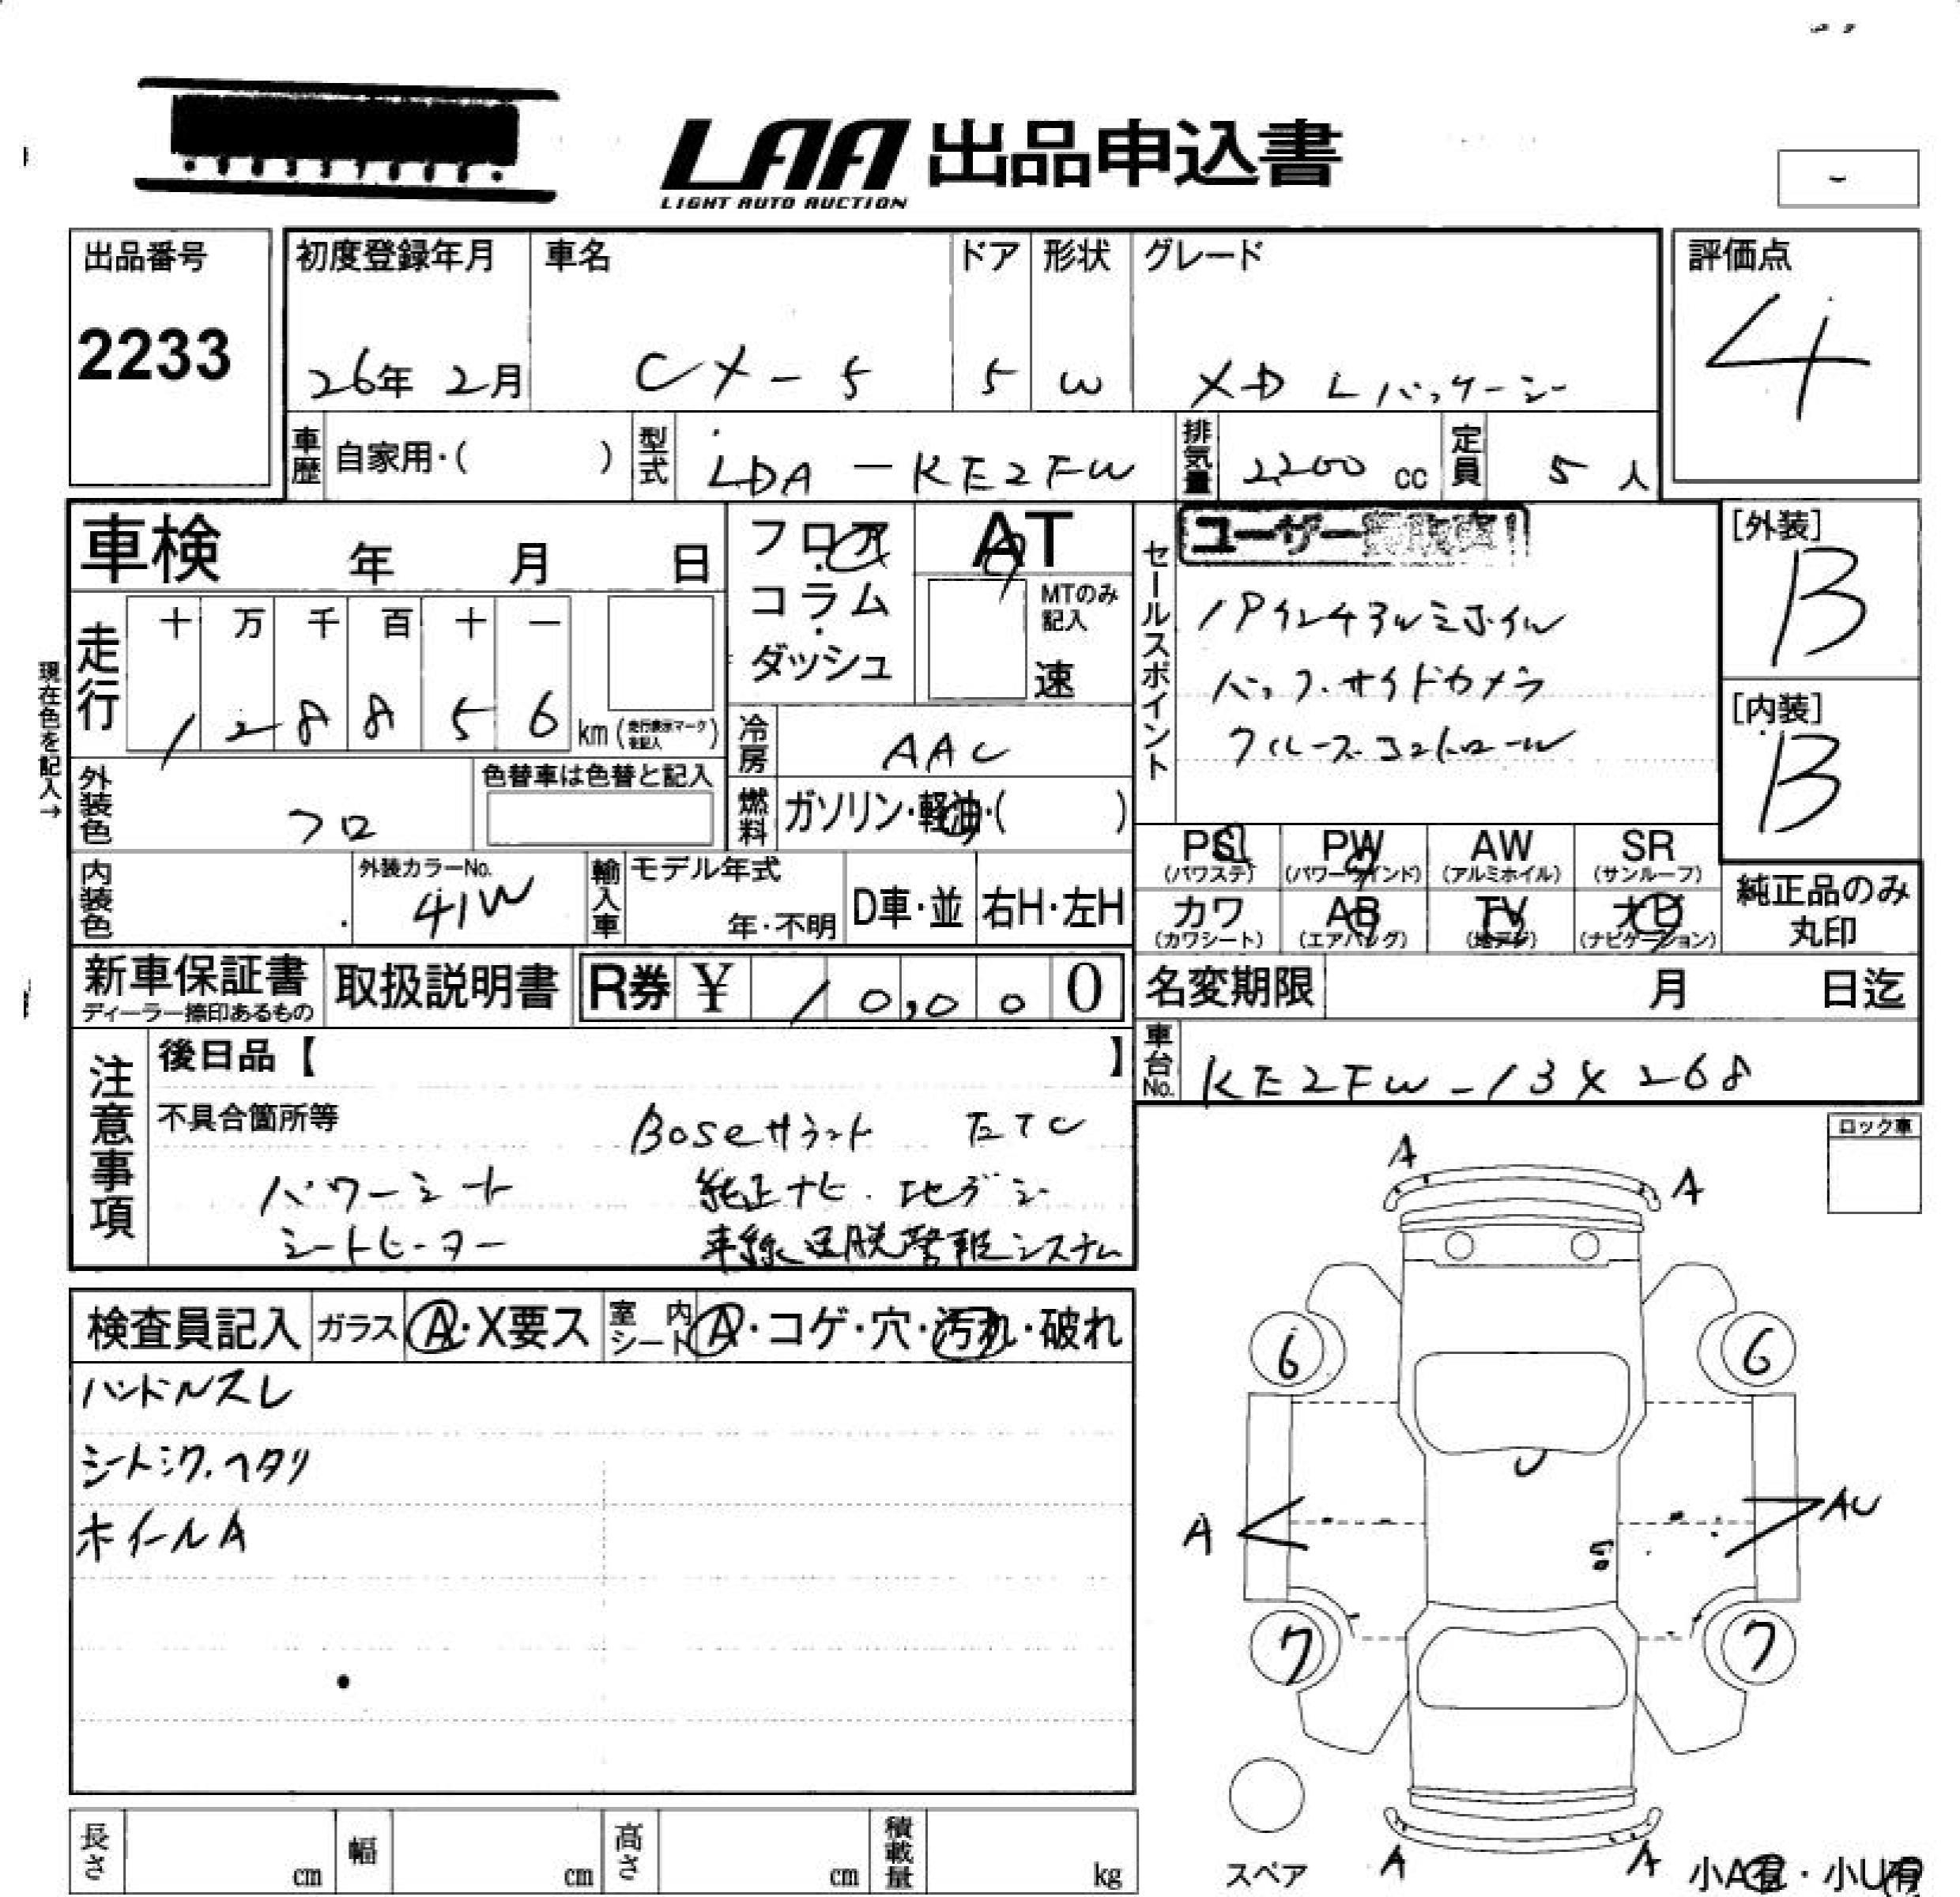 LAA 出品申込書
LIGHT AUTO AUCTION
出品番号
2233
初度登録年月 車名 ドア 形状 グレード
26年 2月 CX-5 5 W XD Lパッケージ
評価点
4
車歴 自家用・( ) 型式 LDA-KE2FW 排気量 2,200 cc 定員 5 人
車検 年 月 日
フロア・コラム・ダッシュ
AT
MTのみ記入
速
セールスポイント
ユーザー
19インチアルミホイル
バック.サイドカメラ
クルーズコントロール
[外装]
B
[内装]
B
現在色を記入→
走行 十 万 千 百 十 一
1 2 8 8 5 6 km (走行表示マーク後記入)
冷房 AAC
燃料 ガソリン・軽油・( )
外装色 クロ
色替車は色替と記入
内装色 外装カラーNo. 41W
輸入車 モデル年式 年・不明 D車・並 右H・左H
PS (パワステ) PW (パワーウインド) AW (アルミホイル) SR (サンルーフ)
カワ (カワシート) AB (エアバッグ) TV (地デジ) ナビ (ナビゲーション)
純正品のみ丸印
新車保証書 ディーラー捺印あるもの 取扱説明書 R券 ¥ 10,000
名変期限 月 日迄
車台No. KE2FW-13X268
注意事項
後日品【 】
不具合箇所等 Boseサウンド ETC
パワーシート 純正ナビ.地デジ
シートヒーター 車線逸脱警報システム
ロック車
検査員記入 ガラス A・X要ス 室内シート A・コゲ・穴・汚れ・破れ
ハンドルスレ
シートシワ.ヘタリ
ホイールA
A A
6 6
U
A AU
7 7
A A
スペア
小A有・小U有
長さ cm 幅 cm 高さ cm 積載量 kg